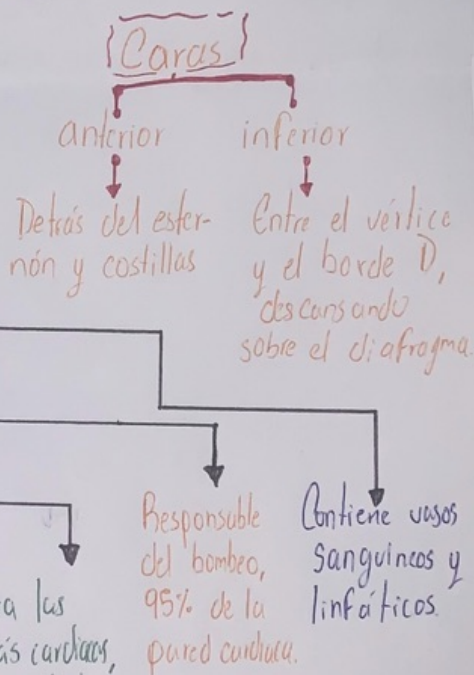 Caras
anterior
inferior
Detrás del ester-
nón y costillas
Entre el vértice
y el borde D,
descansando
sobre el diafragma.
Responsable
del bombeo,
95% de la
pared cardiaca.
Contiene vasos
sanguineos y
linfáticos.
a las
cardiacas,